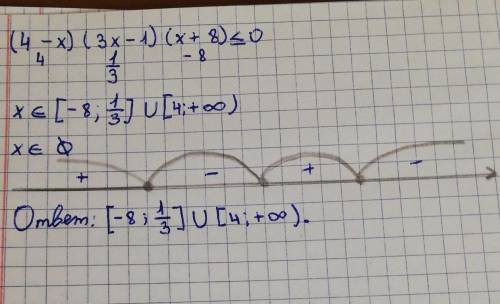 (4 - x) (3x - 1) (x + 8) ≤ 0
4 1/3 -8
x ∈ [-8; 1/3] ∪ [4; +∞)
x ∈ ∅
+ - + -
Ответ: [-8; 1/3] ∪ [4; +∞).